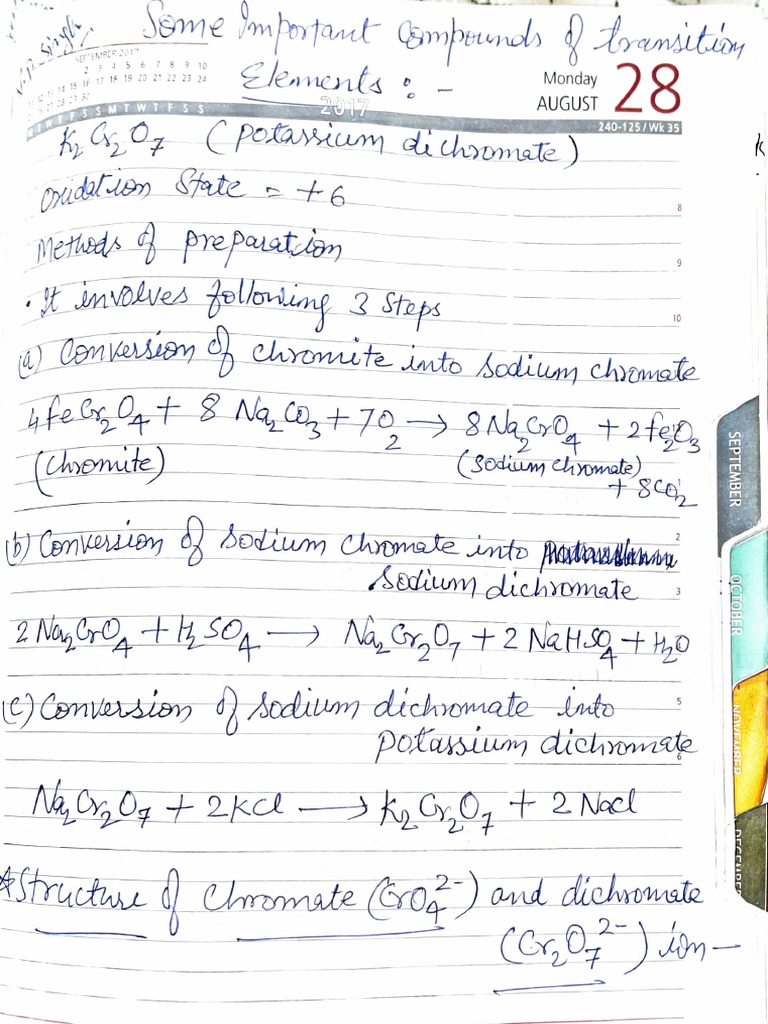 V.P. Singh
Some Important Compounds of transition
Elements : -
SEPTEMBER 2017
Monday
AUGUST 28
2017
240-125 / Wk 35
K₂Cr₂O₇ (potassium dichromate)
Oxidation State = +6
8
Methods of preparation
9
• It involves following 3 Steps
10
(a) Conversion of chromite into sodium chromate
4FeCr₂O₄ + 8 Na₂CO₃ + 7O₂ → 8Na₂CrO₄ + 2Fe₂O₃
(Chromite) (Sodium Chromate)
+ 8CO₂
1
2
(b) Conversion of sodium chromate into
Sodium dichromate
3
2 Na₂CrO₄ + H₂SO₄ → Na₂Cr₂O₇ + 2 NaHSO₄ + H₂O
5
(c) Conversion of sodium dichromate into
potassium dichromate
6
Na₂Cr₂O₇ + 2KCl → K₂Cr₂O₇ + 2 NaCl
*Structure of Chromate (CrO₄²⁻) and dichromate
(Cr₂O₇²⁻) ion —
SEPTEMBER
OCTOBER
NOVEMBER
DECEMBER